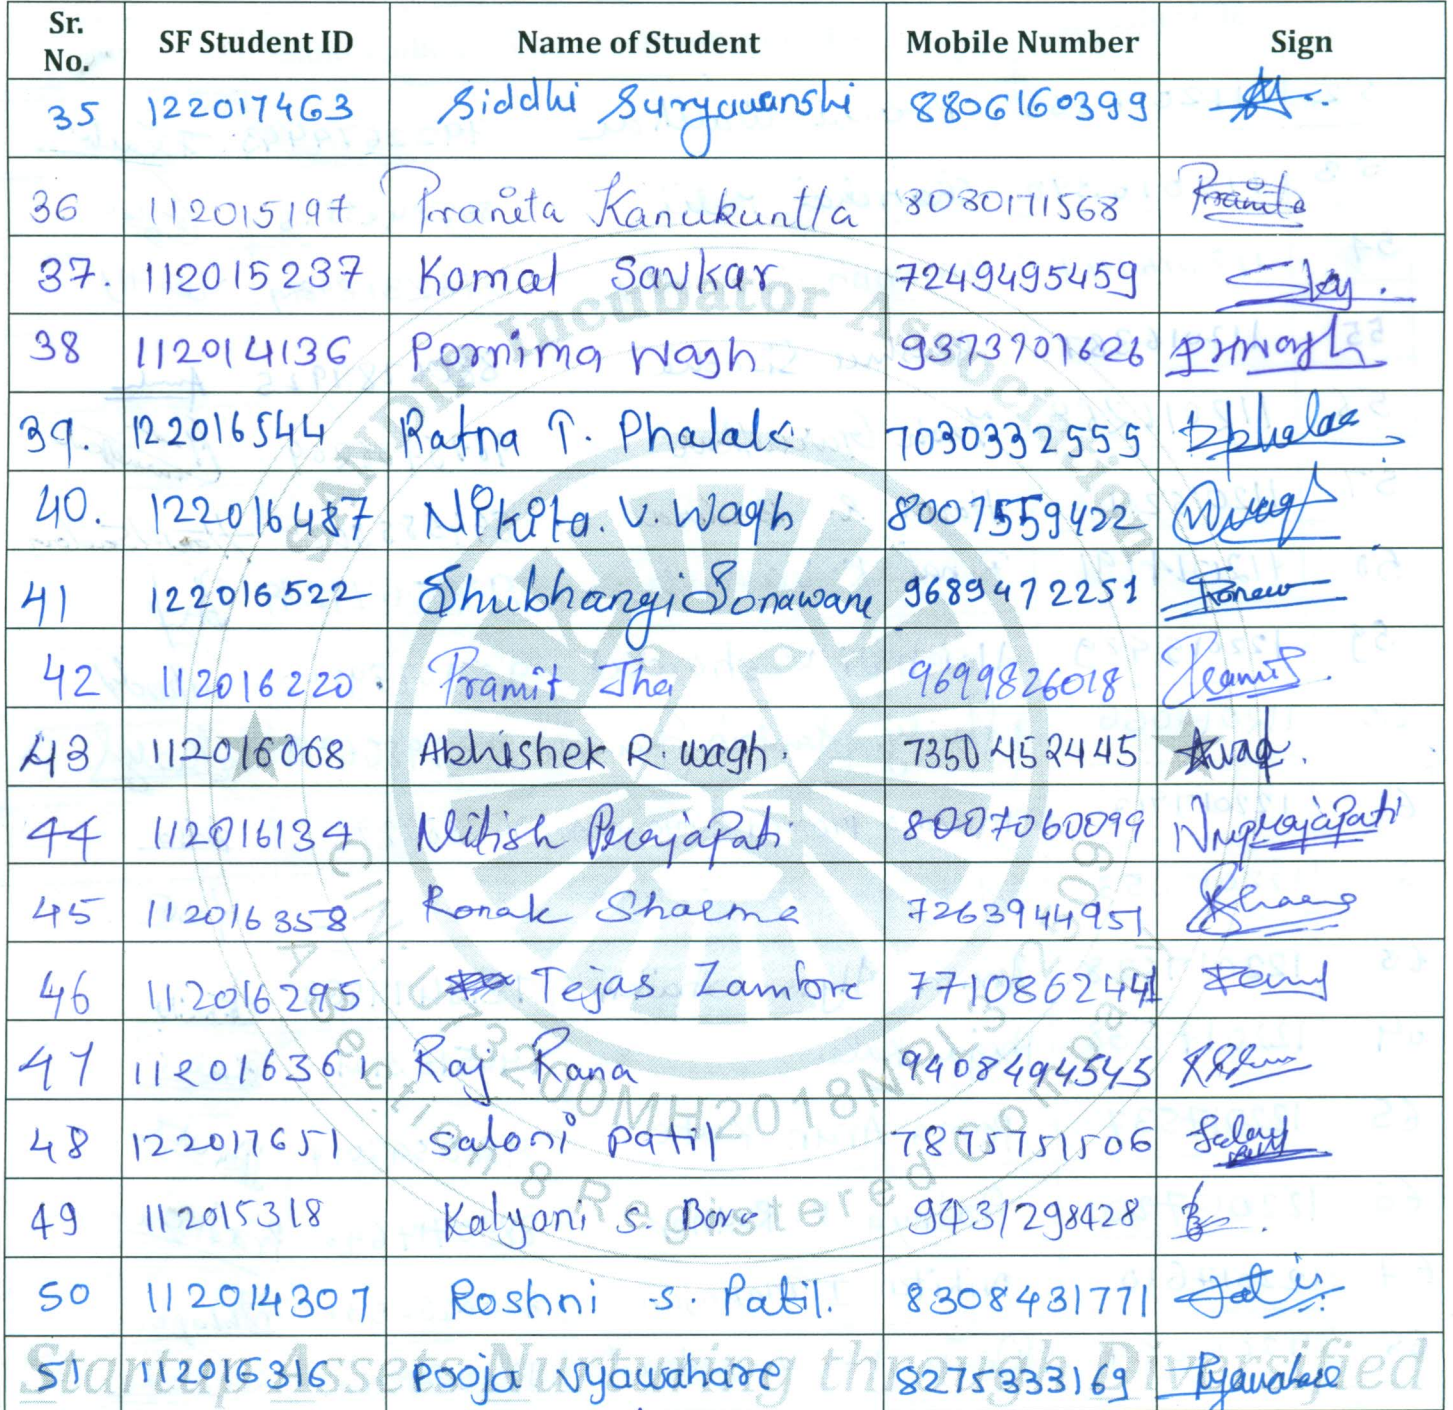 Sr. No. SF Student ID Name of Student Mobile Number Sign
35 122017463 Siddhi Suryawanshi 8806160399
36 112015197 Praneta Kanukuntla 8080171568 Pranita
37. 112015237 Komal Savkar 7249495459
38 112014136 Pornima Wagh 9373701626 PSWagh
39. 122016544 Ratna T. Phalak 7030332555
40. 122016487 Nikita. V. Wagh 8007559422
41 122016522 Shubhangi Sonawane 9689472251
42 112016220. Pramit Jha 9699826018 Pramit.
43 112016068 Abhishek R. wagh. 7350452445
44 112016134 Nitish Prajapati 8007060099 Nuprajapati
45 112016358 Ronak Sharma 7263944951
46 112016295 Tejas Zambre 7710862441
47 112016361 Raj Rana 9408494545
48 122017651 Saloni patil 7875751506
49 112015318 Kalyani s. Bore 9431298428
50 112014307 Roshni s. Patil. 8308431771
51 112016316 Pooja Nyawahare 8275333169
SANDIP Incubator Association
CIN: U73200MH2018NPL312509
A Section 8 Registered Company
Startup Assets Nurturing through Diversified